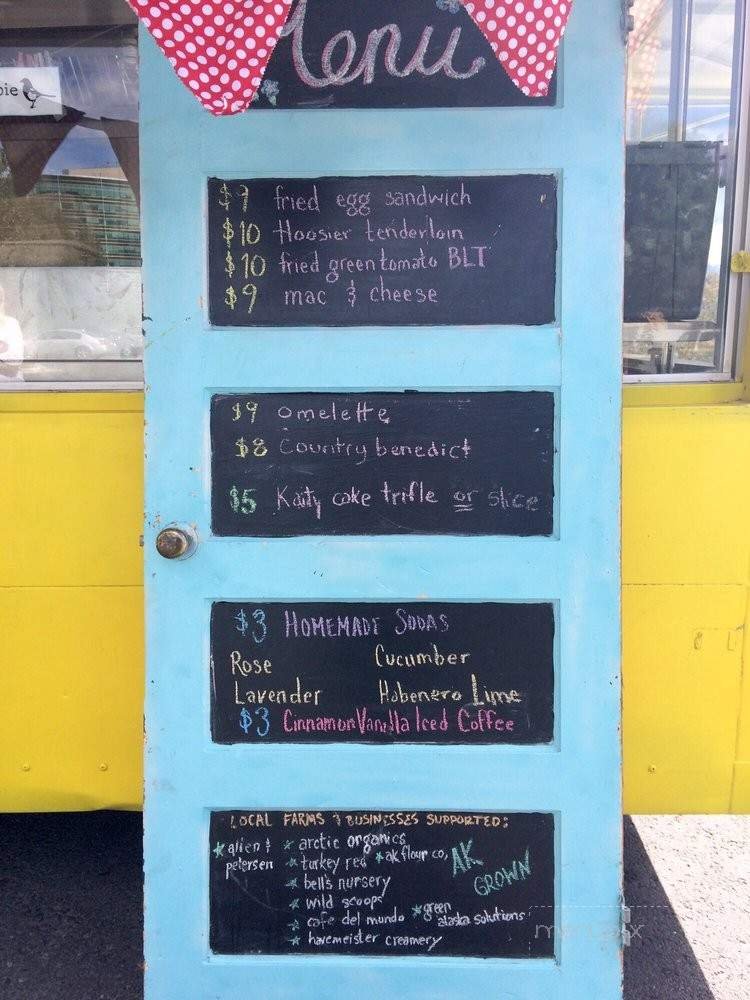 Menu
pie
$9 fried egg sandwich
$10 Hoosier tenderloin
$10 fried green tomato BLT
$9 mac & cheese
$9 omelette
$8 Country benedict
$5 Kaity cake trifle or slice
$3 HOMEMADE SODAS
Rose Cucumber
Lavender Habenero Lime
$3 Cinnamon Vanilla Iced Coffee
LOCAL FARMS & BUSINESSES SUPPORTED:
alien & petersen
arctic organics
turkey red
ak flour co,
bell's nursery
wild scoops
cafe del mundo
green alaska solutions
havemeister creamery
AK GROWN